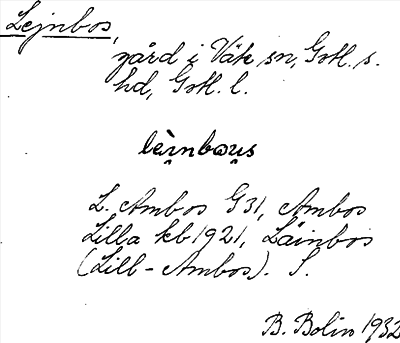 Lejnbos,
gård i Väte sn, Gotl. s.
hd, Gotl. l.
lèi̯nbωu̯s
L. Ambos G31, Ambos
Lilla kb 1921, Läinbos
(Lill-Ambos). S.
B. Bolin 1932